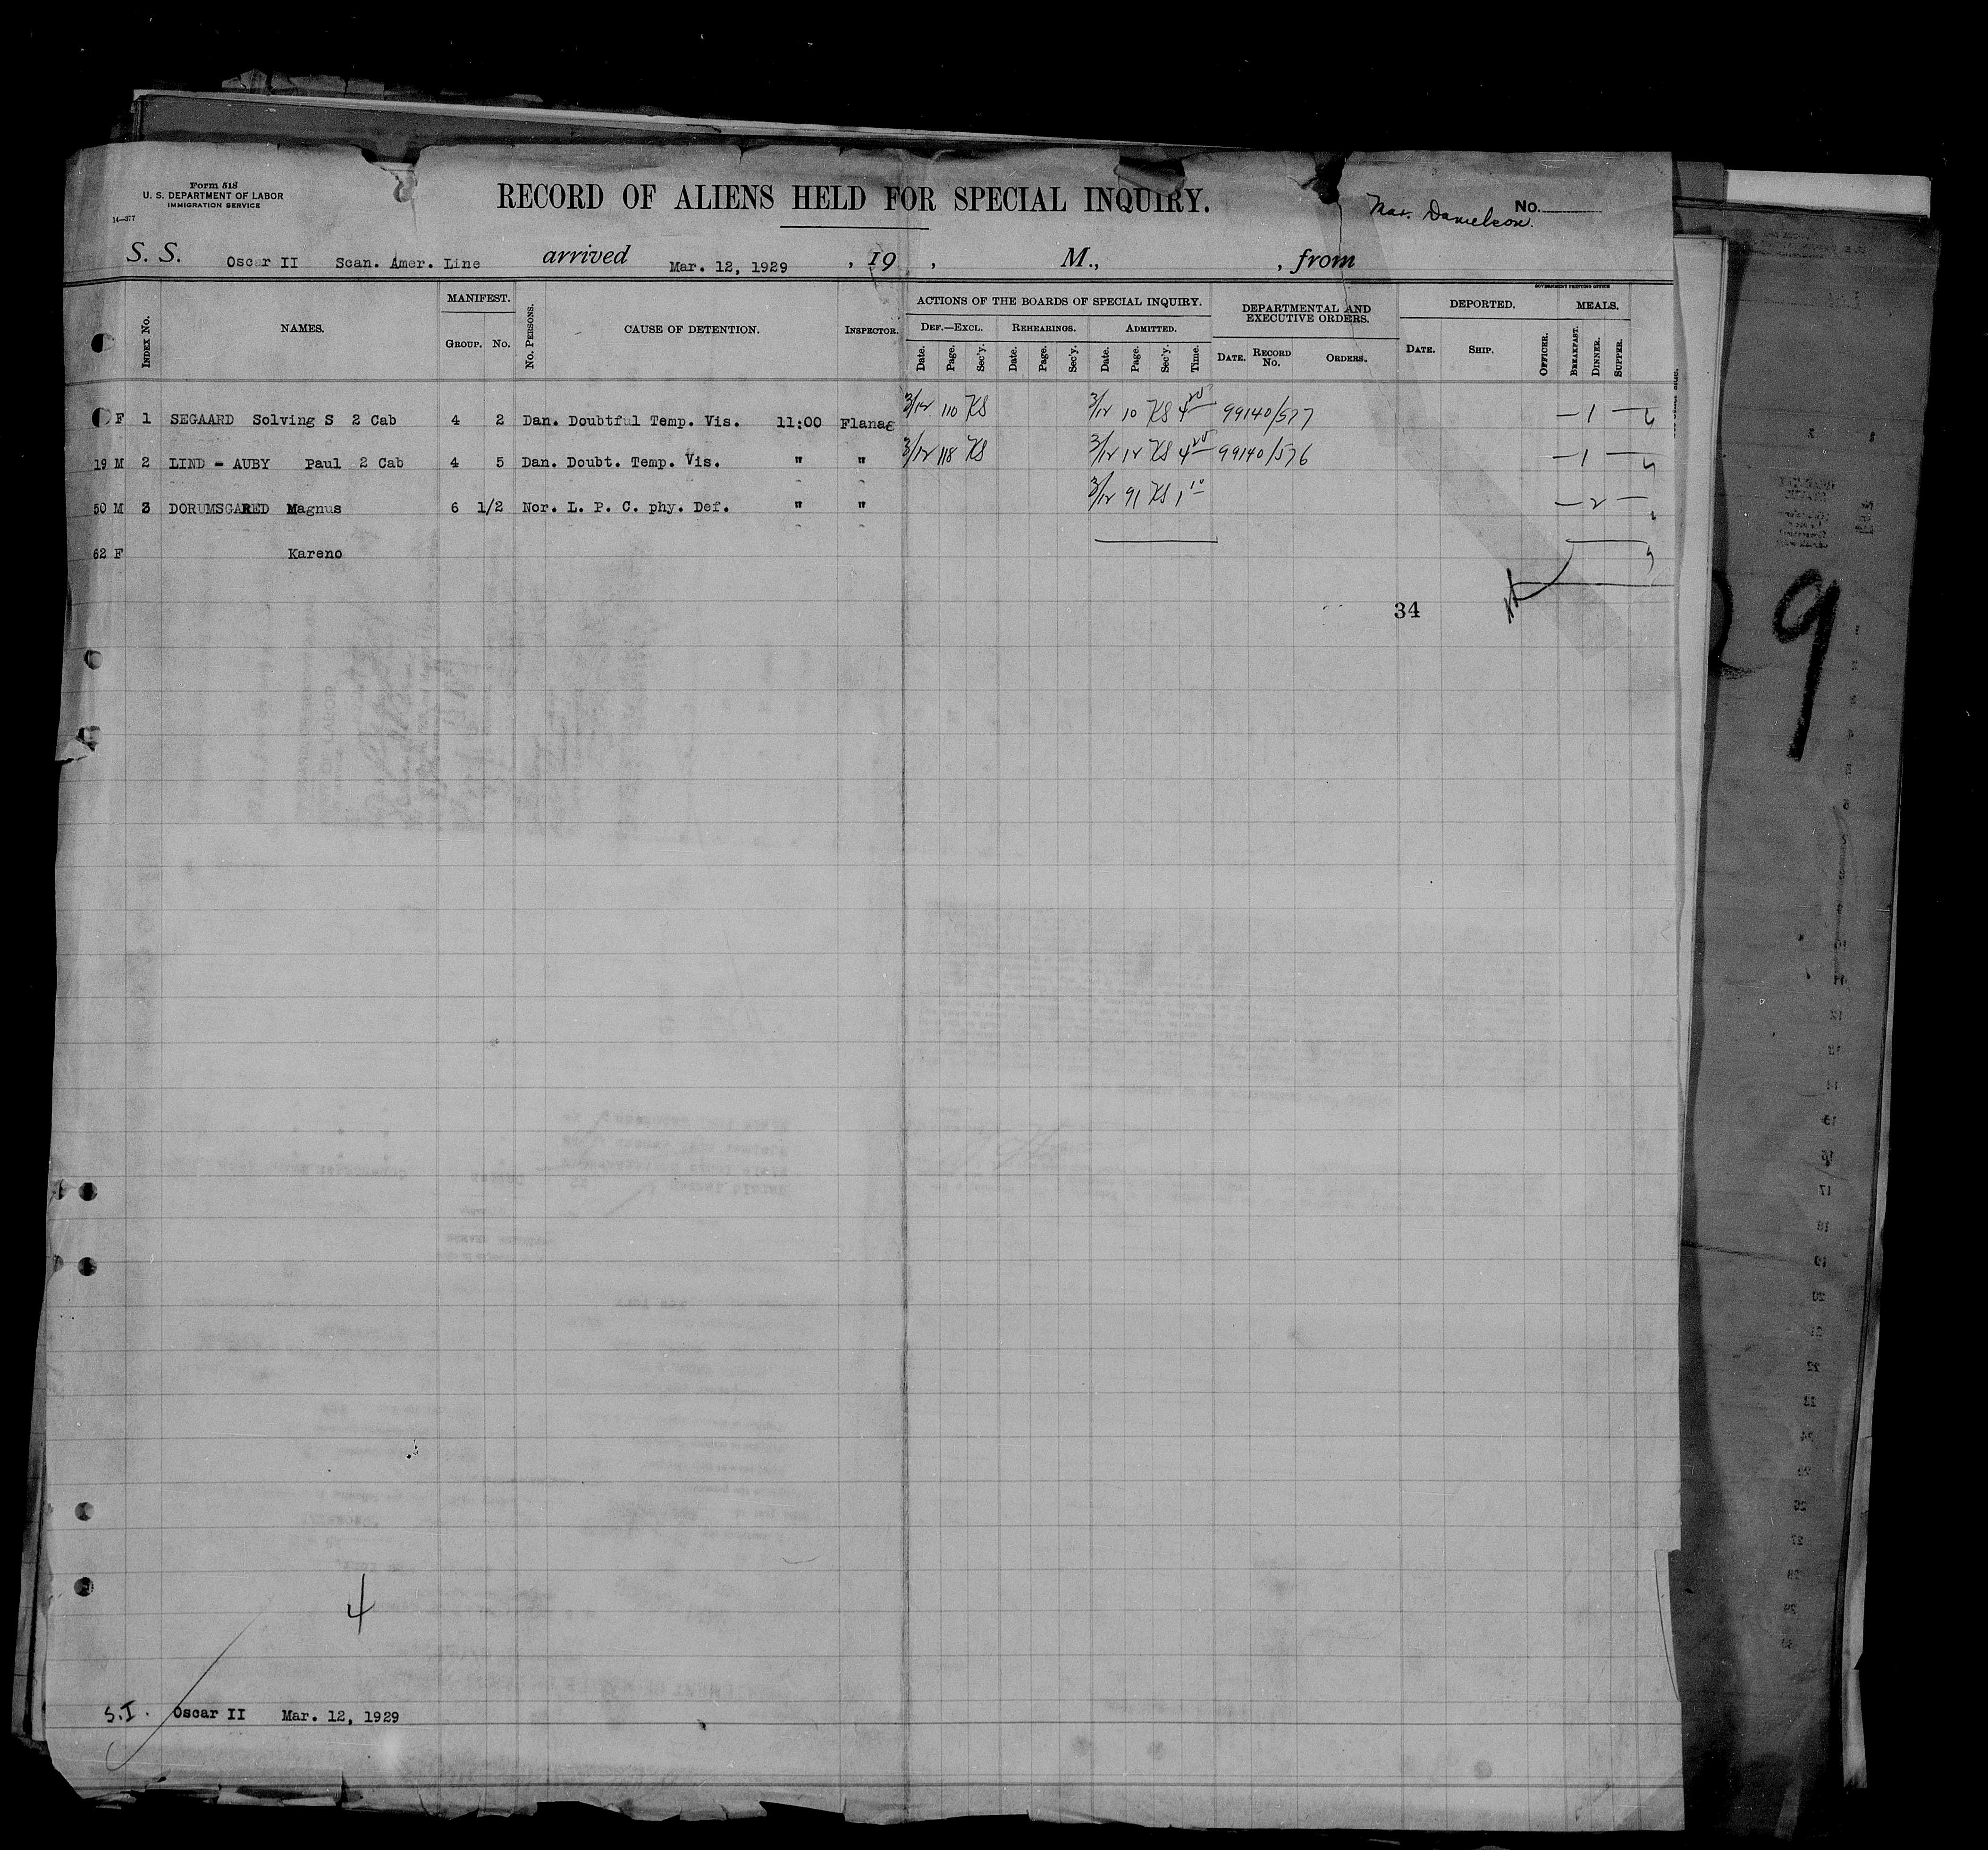 Form 518
U. S. DEPARTMENT OF LABOR
IMMIGRATION SERVICE
14—377
RECORD OF ALIENS HELD FOR SPECIAL INQUIRY.
No.
Danielson.
S. S. Oscar II Scan. Amer. Line arrived Mar. 12, 1929 , 19 , M., , from
GOVERNMENT PRINTING OFFICE
INDEX No. NAMES. MANIFEST. GROUP. No. No. PERSONS. CAUSE OF DETENTION. INSPECTOR. ACTIONS OF THE BOARDS OF SPECIAL INQUIRY. DEPARTMENTAL AND EXECUTIVE ORDERS. DEPORTED. MEALS.
DEF.—EXCL. REHEARINGS. ADMITTED.
Date. Page. Sec'y. Date. Page. Sec'y. Date. Page. Sec'y. Time. DATE. RECORD No. ORDERS. DATE. SHIP. OFFICER. BREAKFAST. DINNER. SUPPER.
F 1 SEGAARD Solving S 2 Cab 4 2 Dan. Doubtful Temp. Vis. 11:00 Flanag 3/12 110 KS 3/12 10 KS 4 20 99140/577 — 1 —
19 M 2 LIND - AUBY Paul 2 Cab 4 5 Dan. Doubt. Temp. Vis. " " 3/12 118 KS 3/12 12 KS 4 20 99140/576 — 1 —
50 M 3 DORUMSGARED Magnus 6 1/2 Nor. L. P. C. phy. Def. " " 3/12 91 KS 1 10 — 2 —
62 F Kareno
34
9
4
S.I. Oscar II Mar. 12, 1929